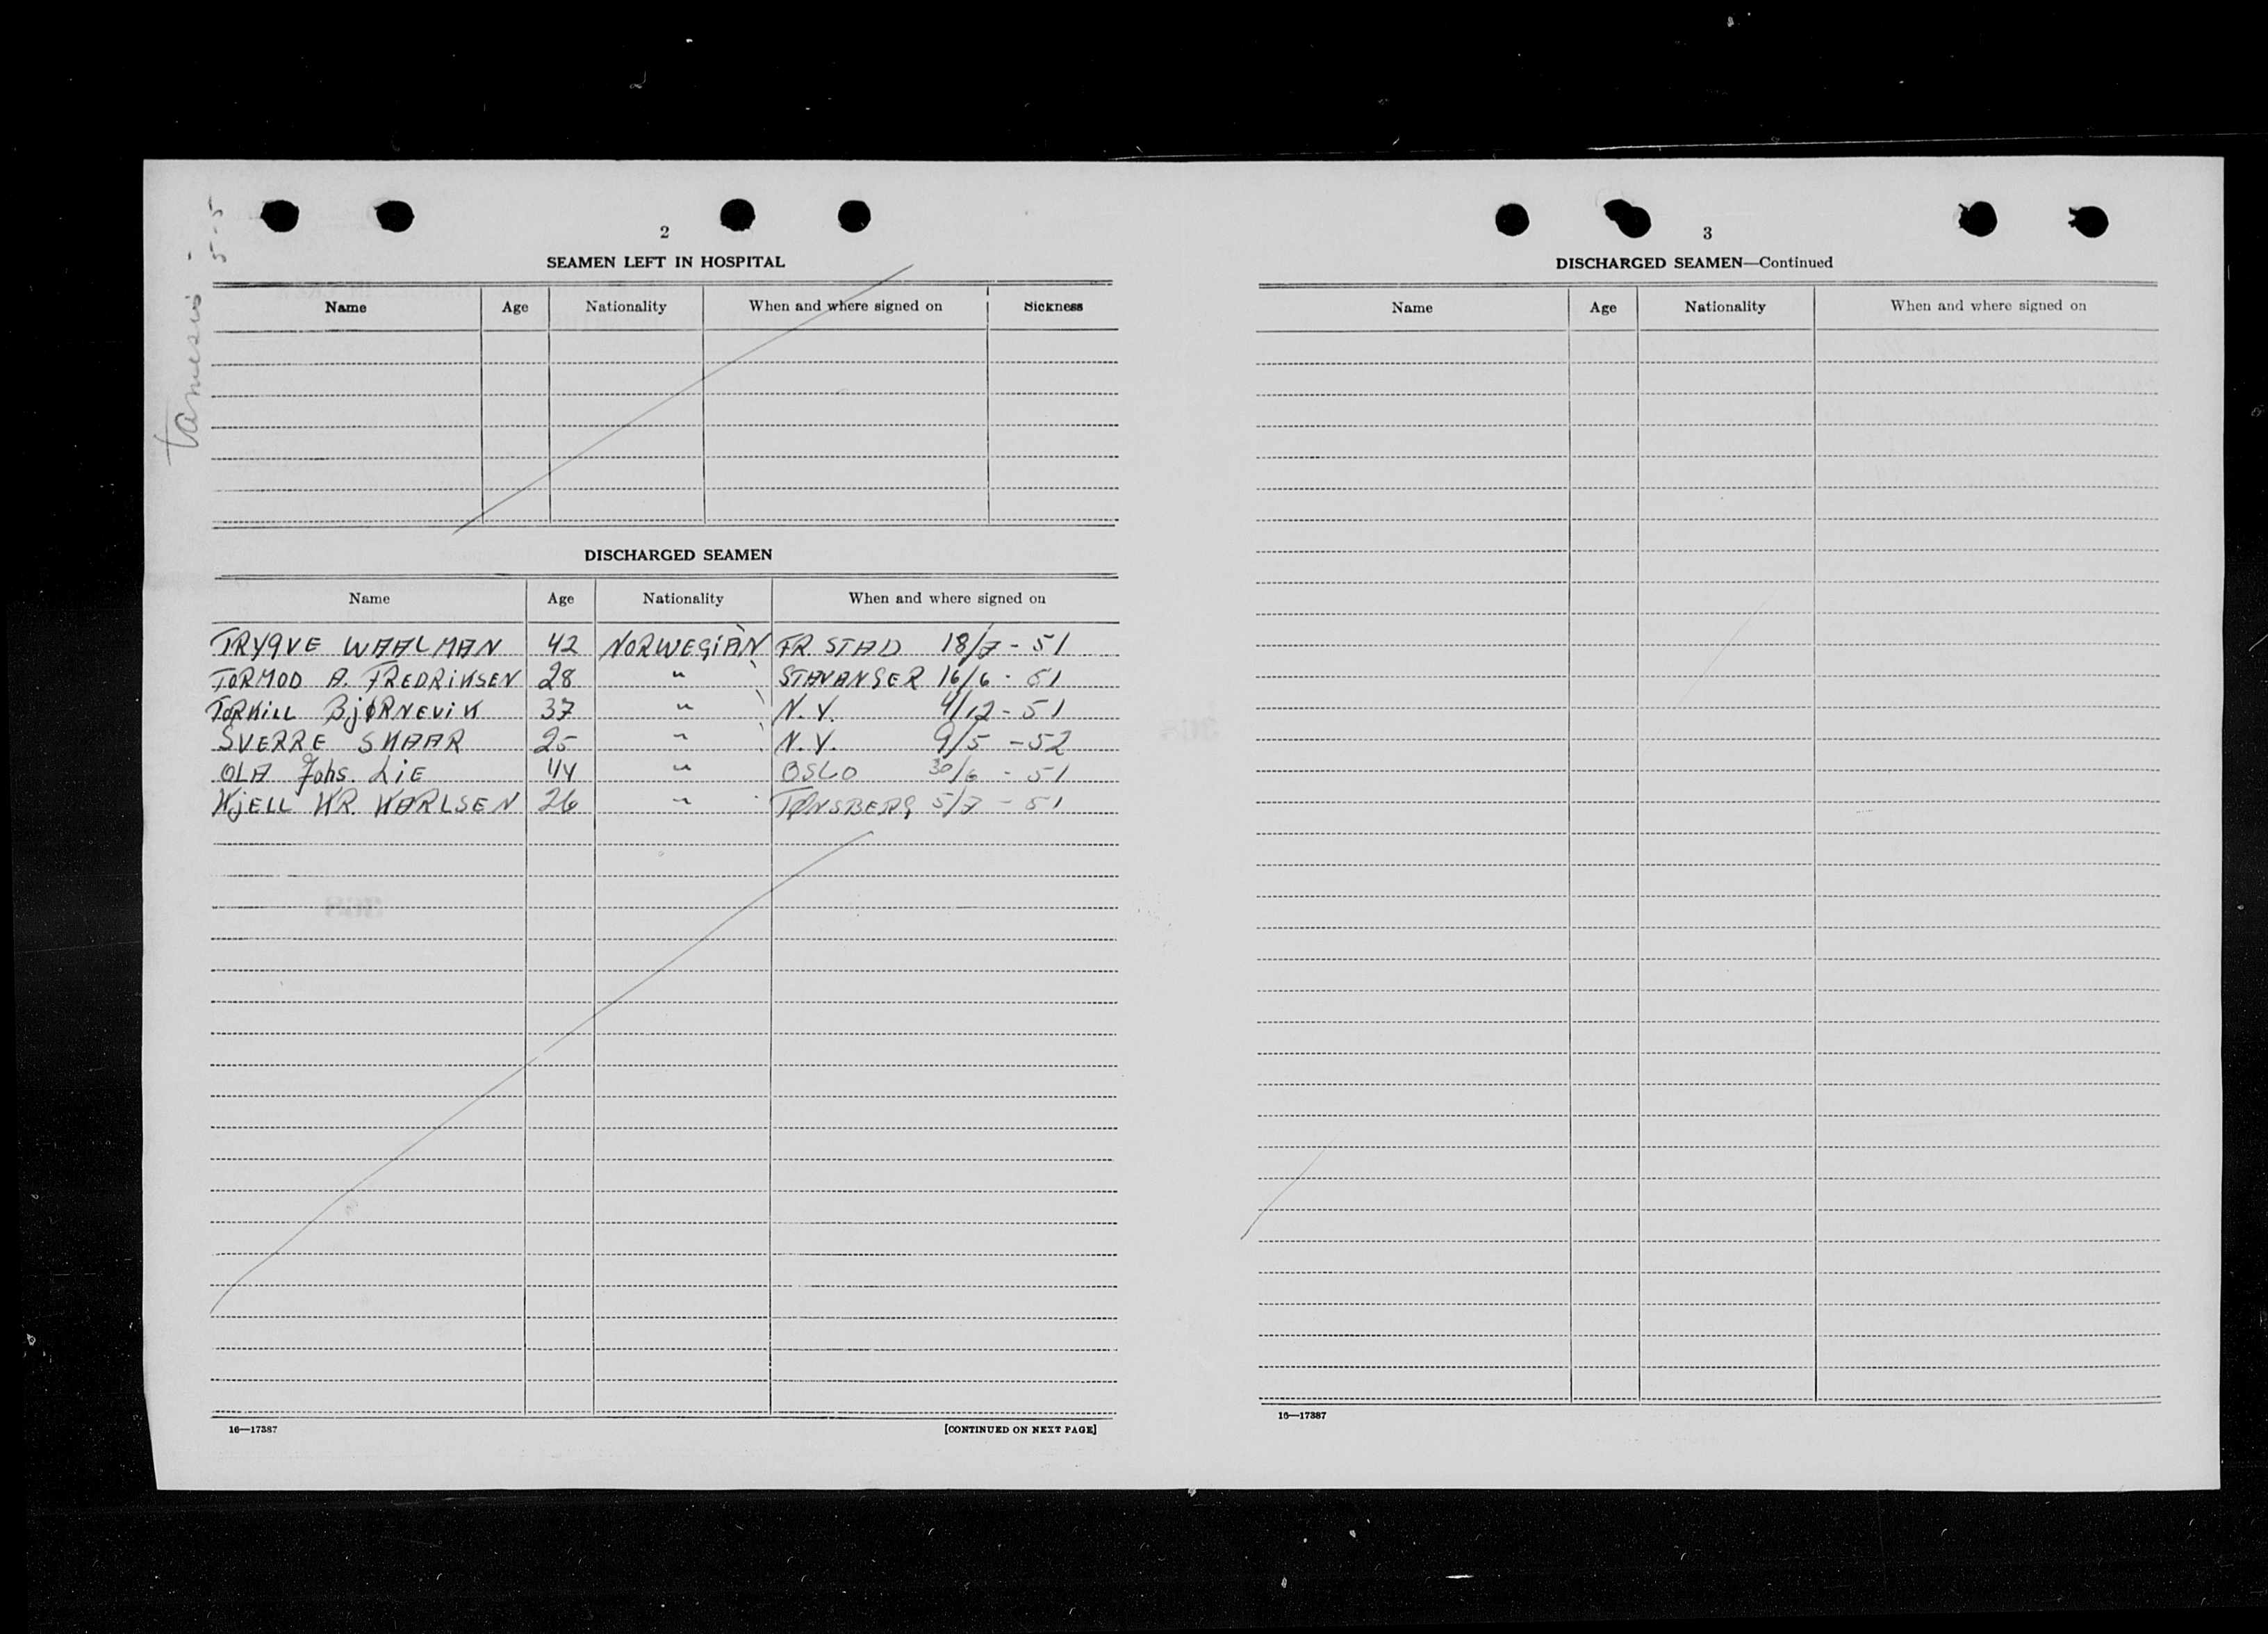 Tamesis 5-5
2
SEAMEN LEFT IN HOSPITAL
Name Age Nationality When and where signed on Sickness
DISCHARGED SEAMEN
Name Age Nationality When and where signed on
TRYGVE WAALMAN 42 NORWEGIAN FR STAD 18/7 - 51
TORMOD A. FREDRIKSEN 28 " STAVANGER 16/6 - 51
TORKILL BJØRNEVIK 37 " N.Y. 4/12 - 51
SVERRE SKAAR 25 " N.Y. 9/5 - 52
OLA Johs. LIE 44 " OSLO 30/6 - 51
KJELL KR. KARLSEN 26 " TØNSBERG 5/7 - 51
16—17387 [CONTINUED ON NEXT PAGE]
3
DISCHARGED SEAMEN—Continued
Name Age Nationality When and where signed on
16—17387